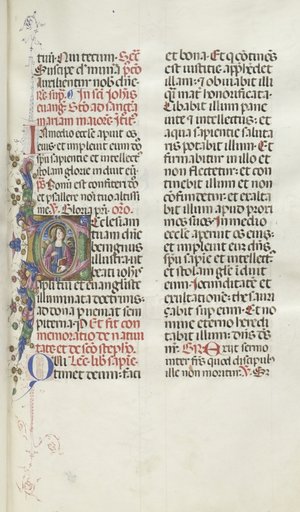 tuū. Nun tecum. Secr̄
Suscipe d. munia
Re sup. In sci Johis
euāg. Stō ad sanctā
mariam maiorē.
In medio ecclē apuit os
eius: et impleuit eum
spū sapientie et intellect
stolam glorie induit eū.
Bonū est confiteri
et psallere noī tuo altissi
me. Gloria pri. oro.
Ecclesiam
tuam dn̄e
benignus
illustra: ut
beati iohis
apli tui et euangliste
illuminata doctrinis:
ad dona pueniat sem
piterna. p. Et fit com
memoratio de natiui
tate et de sco stepho.
Qui Lec. lib. sapie.
timet deum: faci
et bona. Et q cōtinēs
est iustitie apphēdet
illam: et obuiabit illi
quasi mat honorificata.
Cibabit illum pane
uite et intellectus: et
aqua sapientie saluta
ris potabit illum. Et
firmabitur in illo et
non flectetur: et con
tinebit illum et non
cōfundetur: et exalta
bit illum apud proxi
mos suos. In medio
ecclē aperuit os eius:
et impleuit eū dn̄s
spū sapie et intellect:
et stolam glē iduit
eum. Jocunditatē et
exultationē thesauri
çabit sup eum. Et no
mine eterno heredi
tabit illum: dn̄s dē
nr̄. Gr̄. Exiit sermo
inter frēs quod discipulus
ille non moritur. Sz